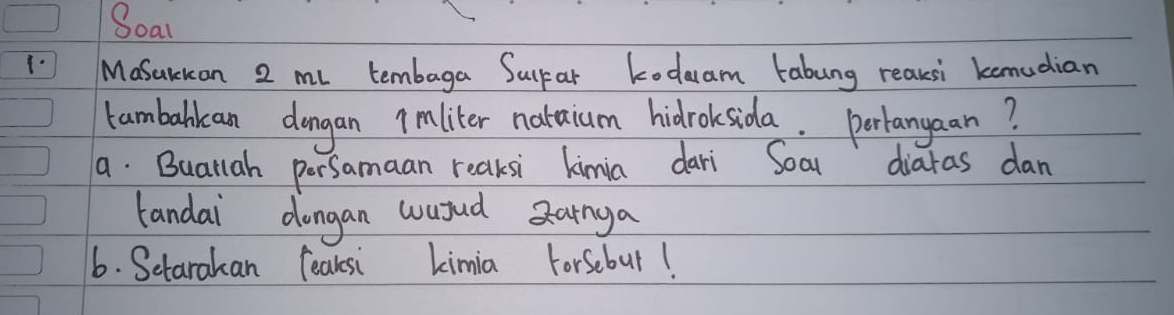 Soal
1. Masukkan 2 mL tembaga Sulfat kedalam tabung reaksi kemudian
tambahkan dengan 1 mliter natrium hidroksida. pertanyaan ?
a. Buatlah persamaan reaksi kimia dari Soal diatas dan
tandai dengan wujud Zatnya
b. Setarakan reaksi kimia tersebut !